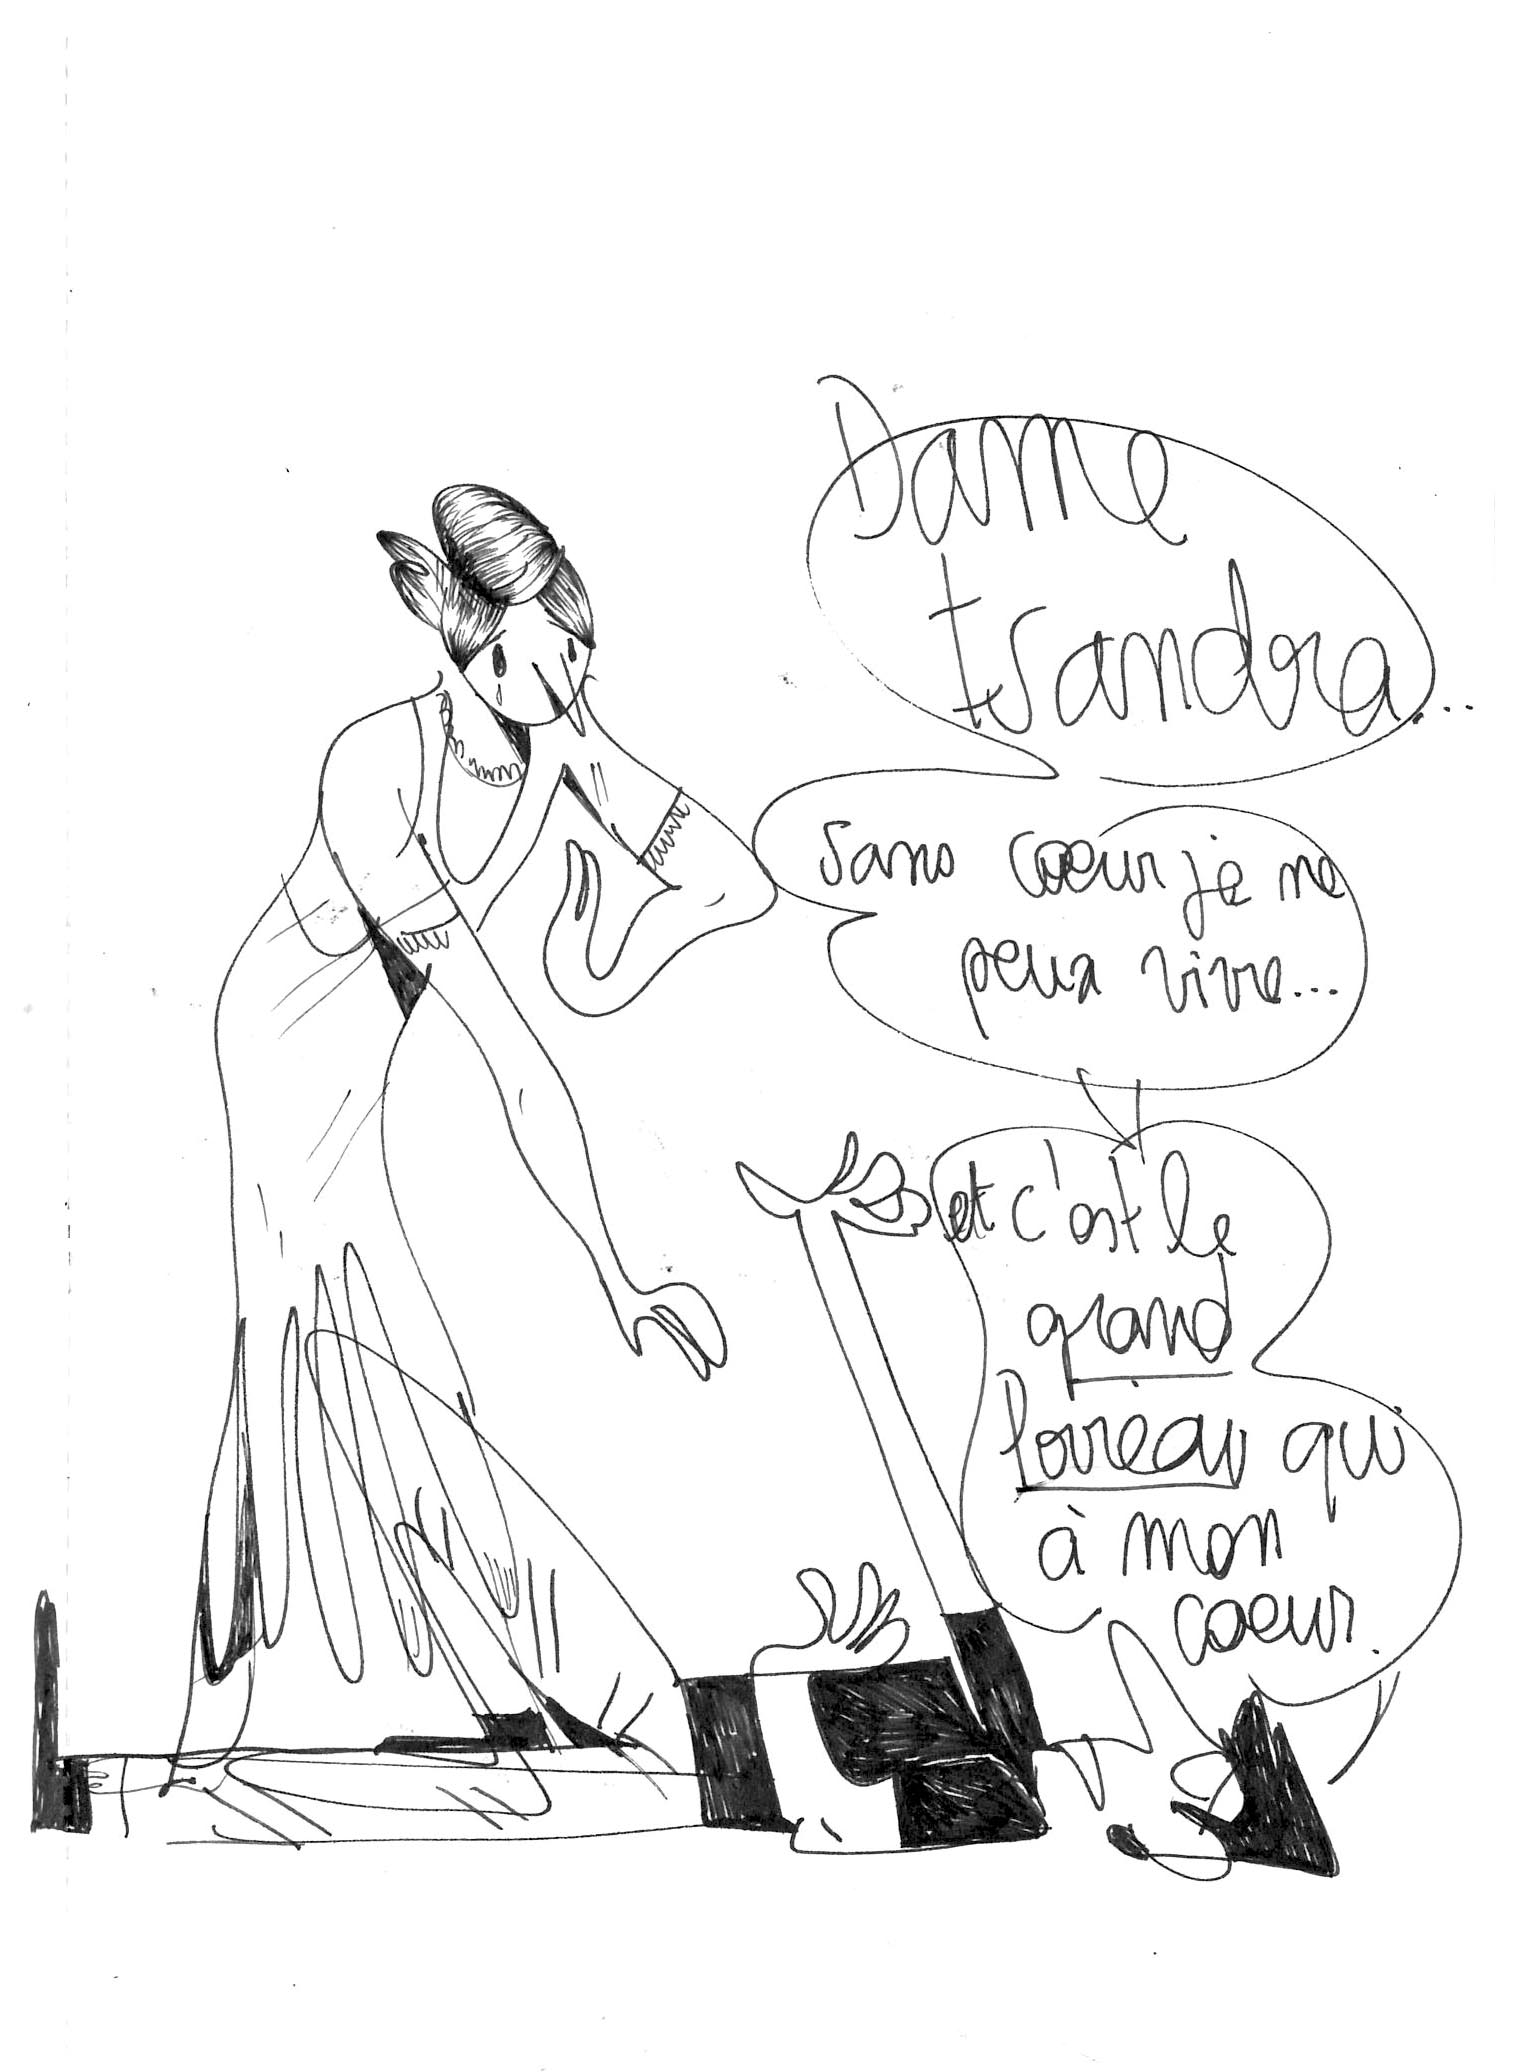 Dame
tsandra...
sans coeur je ne
peux vivre...
et c'est le
grand
Poireau qui
à mon
coeur.